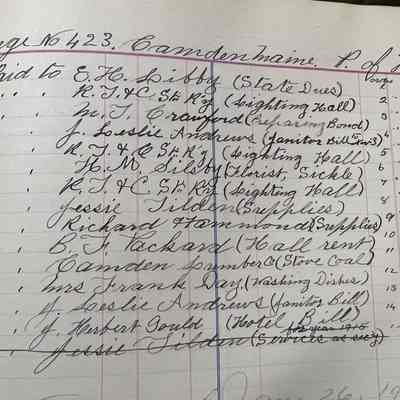 ge No 423. Camden Maine. P. of
aid to E. H. Libby (State Dues)
" R. T. & C. St. R'y (Lighting Hall) 2
" M. T. Crawford (Preparing Bond) 3
" J. Leslie Andrews (Janitor Bill 4
" R. T. & C St R'y (Lighting Hall) 5
" H. M. Silsby (Florist, Sickle) 6
" R. T. & C. St. R'y (Lighting Hall) 7
" Jessie Tilden (Supplies) 8
" Richard Hammond (Supplies) 9
" B. F. Packard (Hall rent) 10
" Camden Lumber Co (Stove Coal)
" Mrs Frank Day (Washing Dishes) 12
" J. Leslie Andrews (Janitor Bill) 13
" J. Herbert Gould (Hotel Bill) 14
for year 1915
" Jessie Tilden (Services as sec'y)